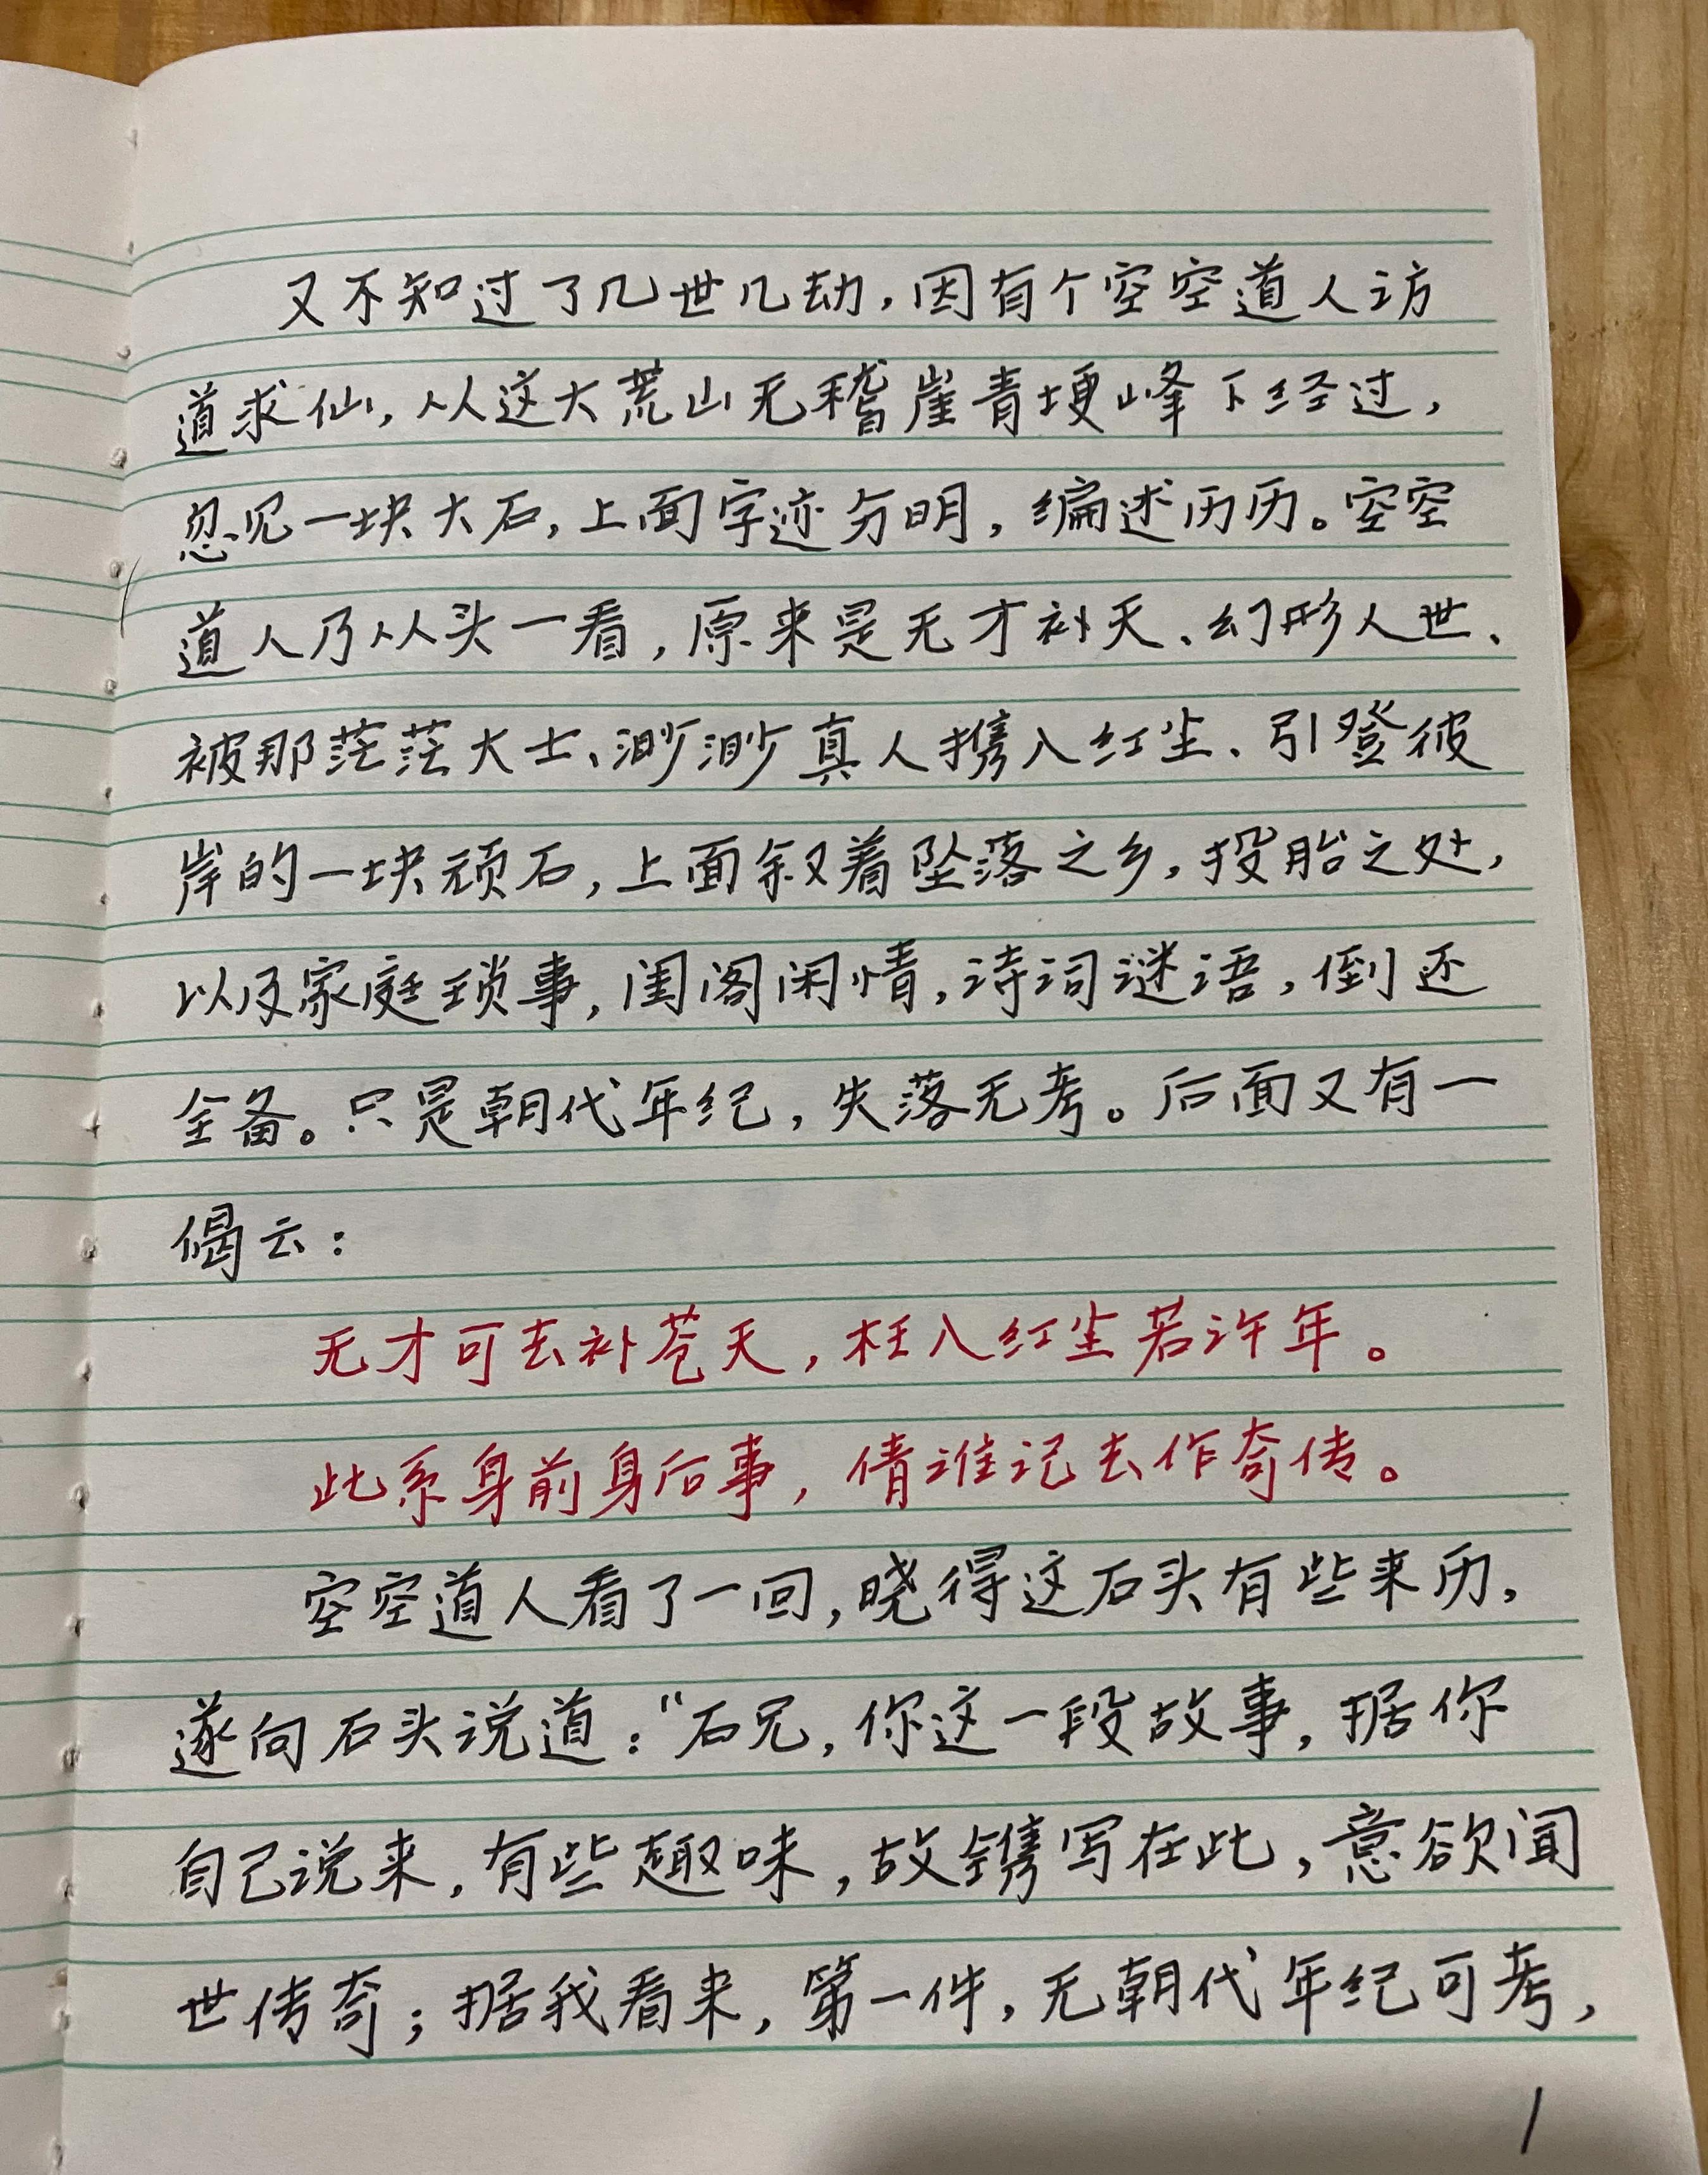 又不知过了几世几劫，因有个空空道人访
道求仙，从这大荒山无稽崖青埂峰下经过，
忽见一块大石，上面字迹分明，编述历历。空空
道人乃从头一看，原来是无才补天、幻形人世、
被那茫茫大士、渺渺真人携入红尘、引登彼
岸的一块顽石，上面叙着坠落之乡，投胎之处，
以及家庭琐事，闺阁闲情，诗词谜语，倒还
全备。只是朝代年纪，失落无考。后面又有一
偈云：
无才可去补苍天，枉入红尘若许年。
此系身前身后事，倩谁记去作奇传。
空空道人看了一回，晓得这石头有些来历，
遂向石头说道：“石兄，你这一段故事，据你
自己说来，有些趣味，故镌写在此，意欲闻
世传奇；据我看来，第一件，无朝代年纪可考，
1